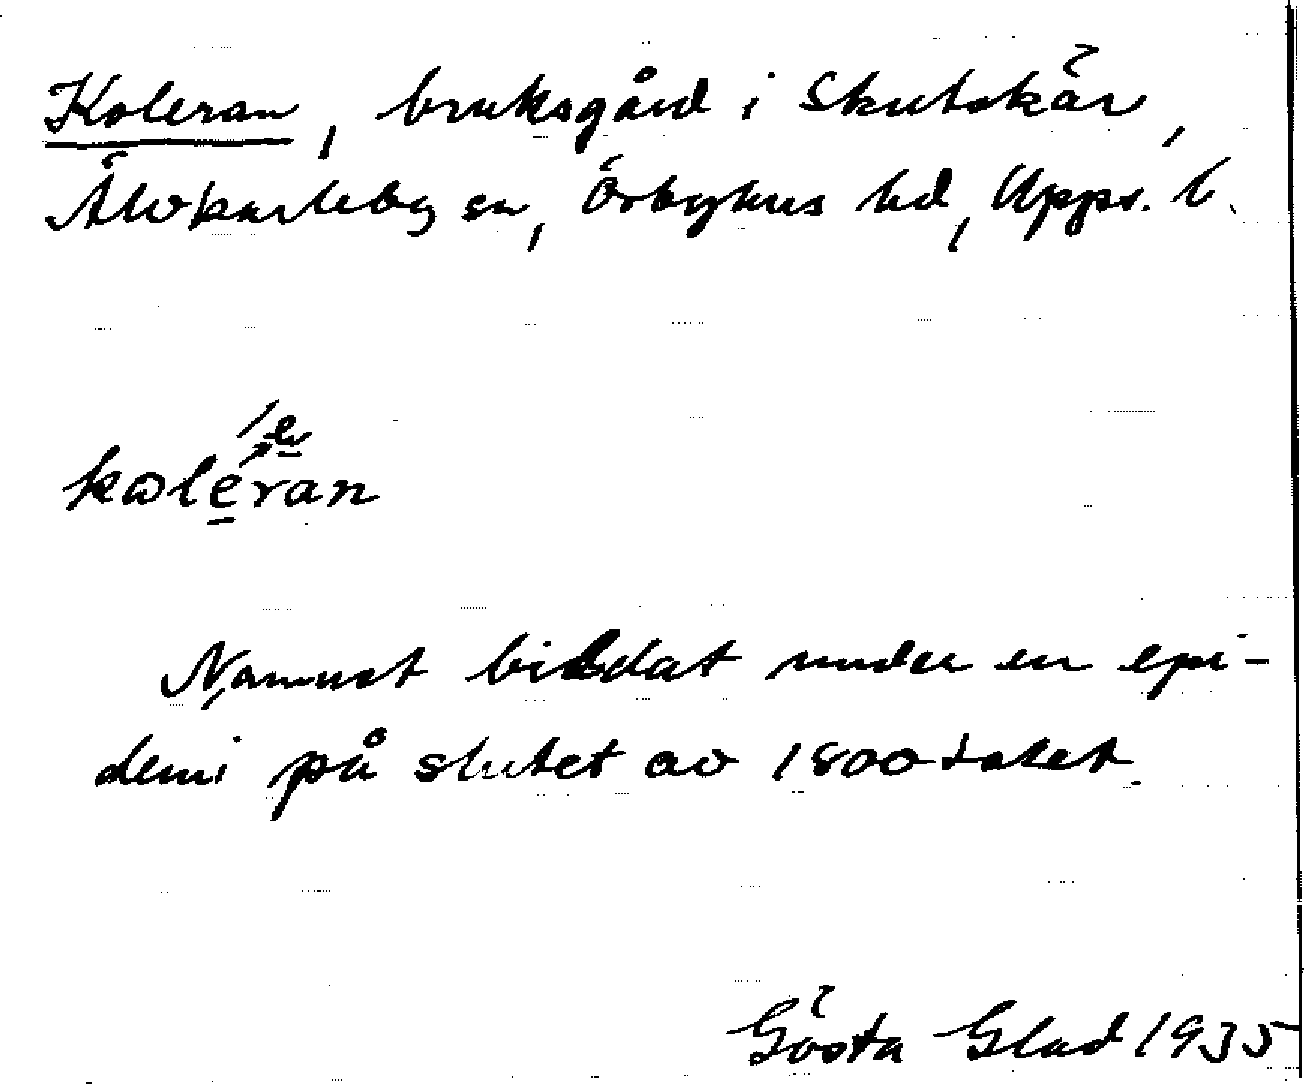 Koleran, bruksgård i Skutskär,
Älvkarleby sn, Örbyhus hd, Upps. l.
koleran
Namnet bildat under en epi-
demi på slutet av 1800talet.
Gösta Glad 1935